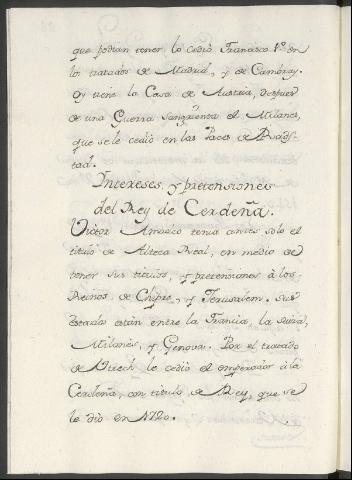 que podian tener lo cedio Francisco 1º en
los tratados de Madrid, y de Cambray.
Oy tiene la Casa de Austria, despues
de una Guerra sangrienta el Milanes,
que se le cedio en las Paces de Radis-
tad.
Intereses, y pretensiones
del Rey de Cerdeña.
Victor Amadeo tenia antes solo el
titulo de Alteza Real, en medio de
tener sus titulos, y pretensiones à los
Reinos de Chipre, y Jerusalem. sus
estados están entre la Francia, la Suiza,
Milanes, y Genova. Por el tratado
de Utrech le cedio el emperador à la
Cerdeña, con titulo de Rey, que se
le dio en 1720.